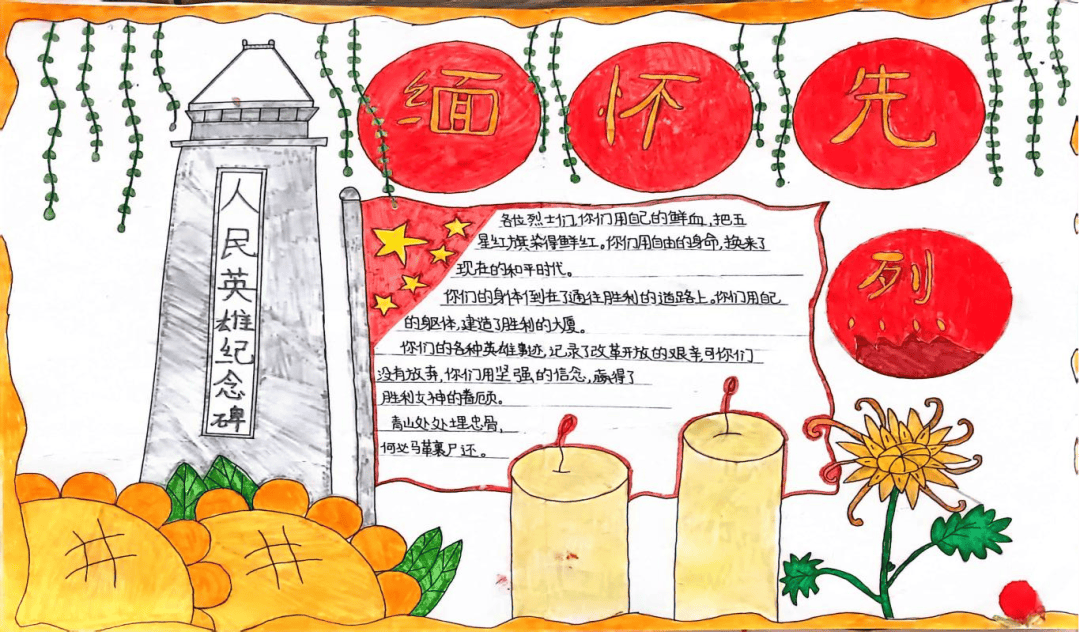 缅怀先
烈
人民英雄纪念碑
各位烈士们,你们用自己的鲜血,把五
星红旗染得鲜红。你们用自由的身命,换来了
现在的和平时代。
你们的身体倒在了通往胜利的道路上。你们用自己
的躯体,建造了胜利的大厦。
你们的各种英雄事迹,记录了改革开放的艰辛,可你们
没有放弃,你们用坚强的信念,赢得了
胜利女神的眷顾。
青山处处埋忠骨,
何必马革裹尸还。